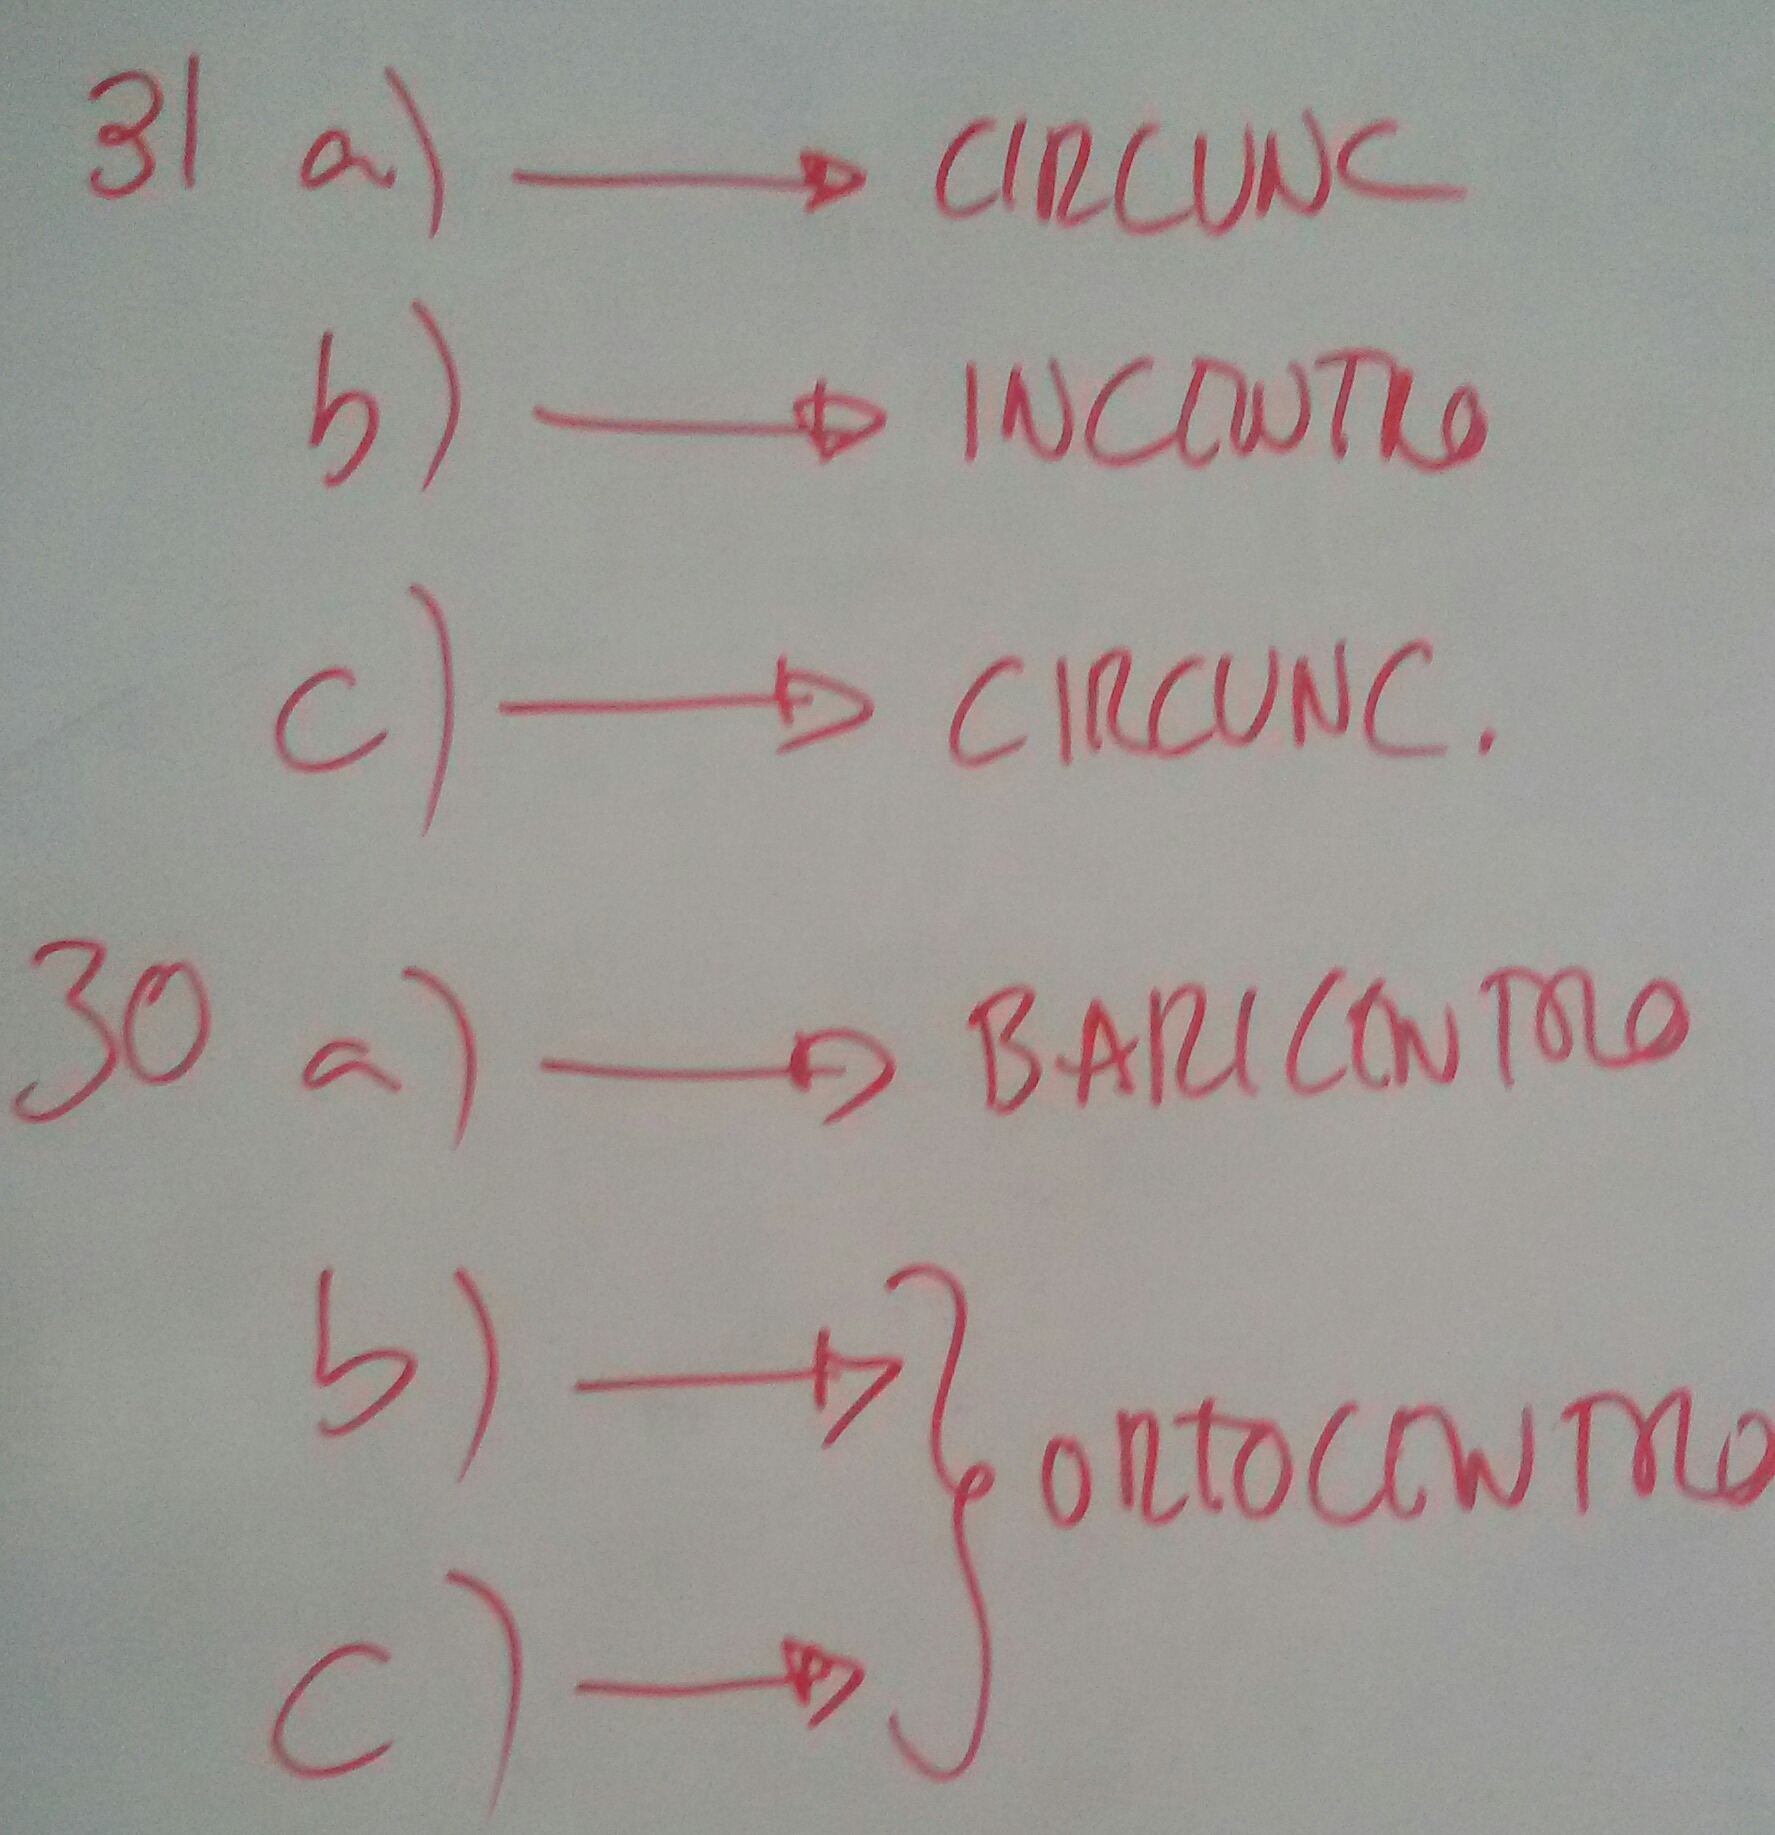 31 a) → CIRCUNC
b) → INCENTRO
c) → CIRCUNC.
30 a) → BARICENTRO
b) →
ORTOCENTRO
c) →